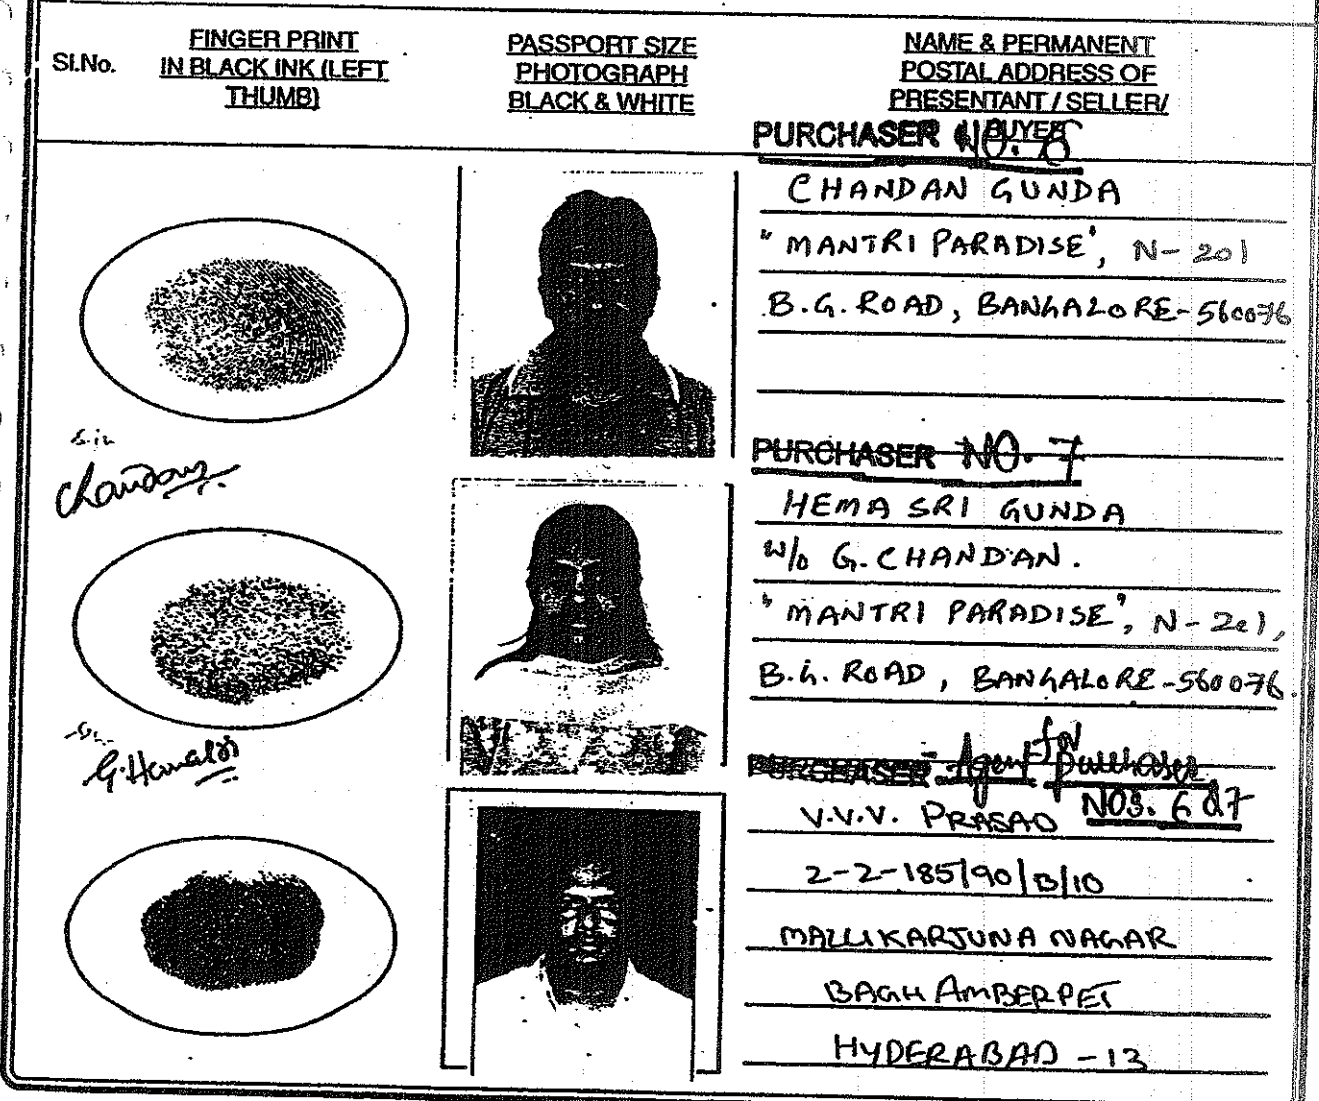 Sl.No.
FINGER PRINT
IN BLACK INK (LEFT
THUMB)
PASSPORT SIZE
PHOTOGRAPH
BLACK & WHITE
NAME & PERMANENT
POSTAL ADDRESS OF
PRESENTANT / SELLER/
BUYER
PURCHASER NO. 6
CHANDAN GUNDA
"MANTRI PARADISE', N-201
B.G. ROAD, BANGALORE-560076
Chandan
PURCHASER NO. 7
HEMA SRI GUNDA
W/o G. CHANDAN.
'MANTRI PARADISE', N-201,
B.G. ROAD, BANGALORE-560076.
G. Hemasri
PURCHASER - Agent for purchaser
NOS. 6 & 7
V.V.V. PRASAD
2-2-185/90/B/10
MALLIKARJUNA NAGAR
BAGH AMBERPET
HYDERABAD - 13